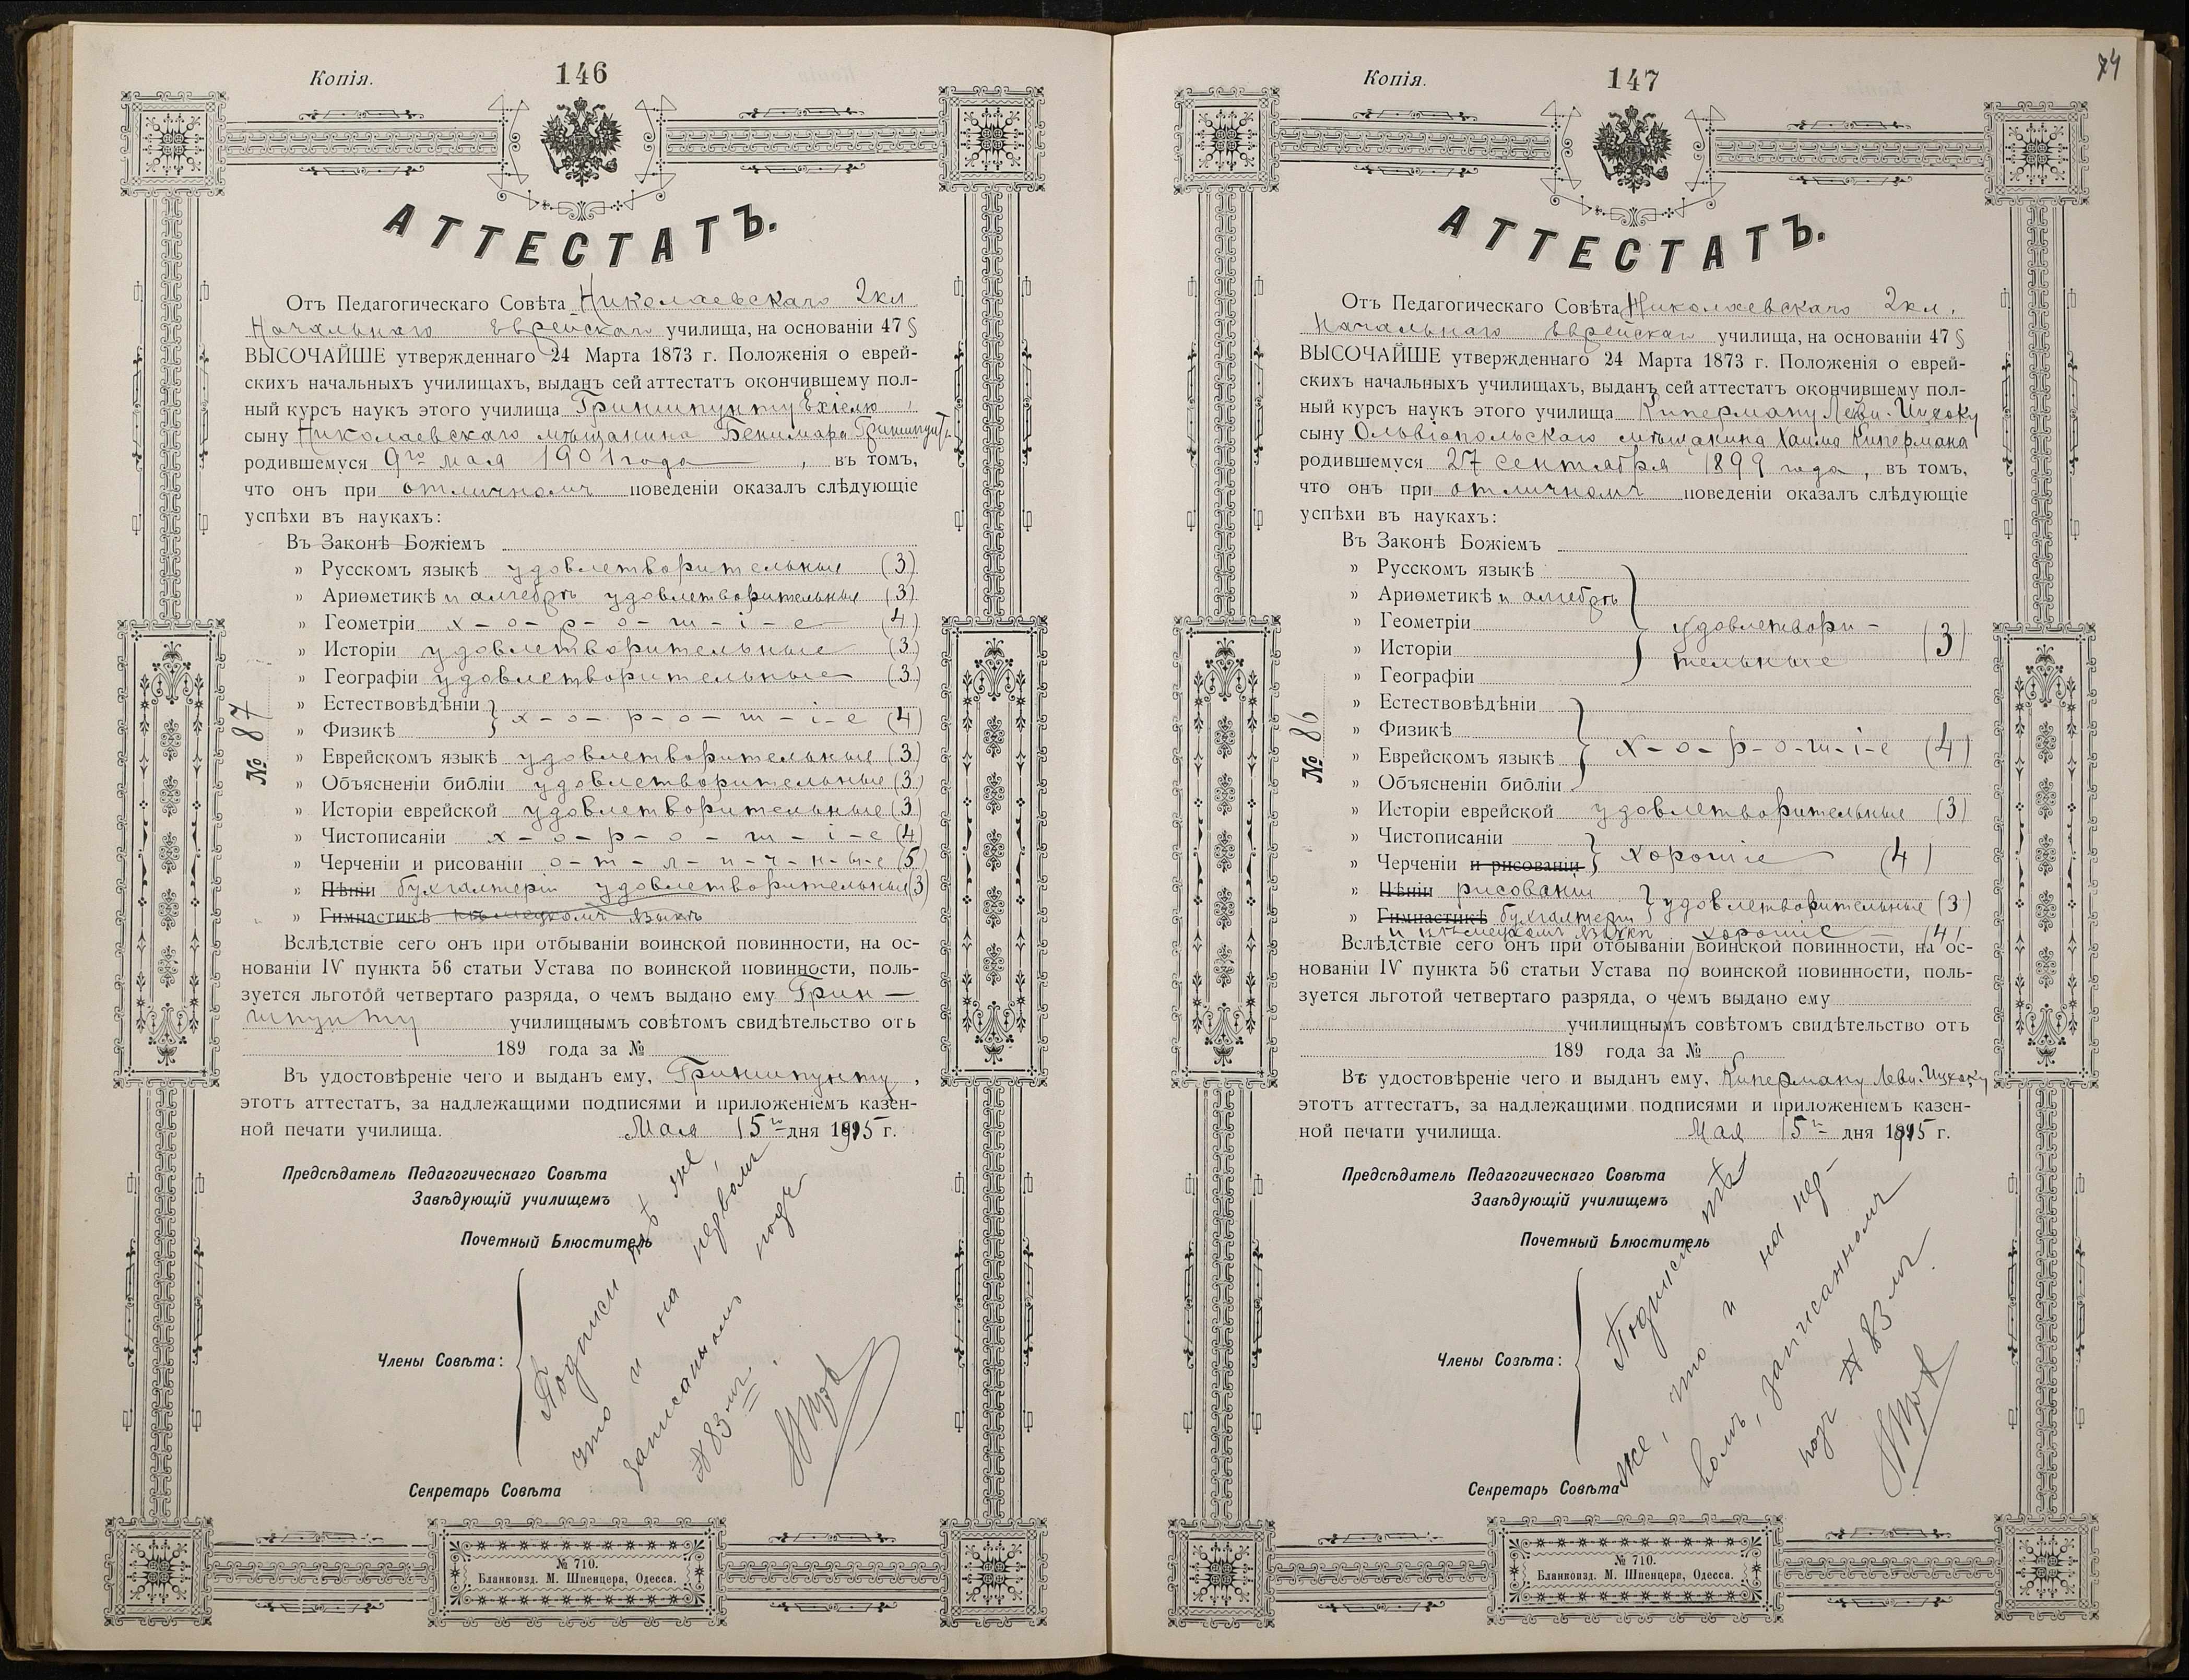 Копія.
146
АТТЕСТАТЪ.
Отъ Педагогическаго Совѣта Николаевскаго 2кл
Начальнаго Еврейскаго училища, на основаніи 47 §
ВЫСОЧАЙШЕ утвержденнаго 24 Марта 1873 г. Положенія о еврей-
скихъ начальныхъ училищахъ, выданъ сей аттестатъ окончившему пол-
ный курсъ наукъ этого училища Гриншпунту Ехіелю,
сыну Николаевскаго мѣщанина Гриншпунтъ
родившемуся 9го мая 1901 года, въ томъ,
что онъ при отличномъ поведеніи оказалъ слѣдующіе
успѣхи въ наукахъ:
Въ Законѣ Божіемъ
» Русскомъ языкѣ удовлетворительные (3)
» Ариѳметикѣ и алгебрѣ удовлетворительные (3)
» Геометріи х-о-р-о-ш-і-е (4)
» Исторіи удовлетворительные (3)
» Географіи удовлетворительные (3)
» Естествовѣдѣніи
» Физикѣ х-о-р-о-ш-і-е (4)
» Еврейскомъ языкѣ удовлетворительные (3)
» Объясненіи библіи удовлетворительные (3)
» Исторіи еврейской удовлетворительные (3)
» Чистописаніи х-о-р-о-ш-і-е (4)
» Черченіи и рисованіи о-т-л-и-ч-н-ы-е (5)
» Пѣніи бухгалтеріи удовлетворительные (3)
» Гимнастикѣ нѣмецкомъ языкѣ
№ 87
Вслѣдствіе сего онъ при отбываніи воинской повинности, на ос-
нованіи IV пункта 56 статьи Устава по воинской повинности, поль-
зуется льготой четвертаго разряда, о чемъ выдано ему Грин-
шпунту училищнымъ совѣтомъ свидѣтельство отъ
189 года за №
Въ удостовѣреніе чего и выданъ ему, Гриншпунту,
этотъ аттестатъ, за надлежащими подписями и приложеніемъ казен-
ной печати училища. Мая 15го дня 1915 г.
Предсѣдатель Педагогическаго Совѣта
Завѣдующій училищемъ
Почетный Блюститель
Члены Совѣта:
Секретарь Совѣта
Подписи тѣ же,
что и на первомъ
записанномъ подъ
№ 83 мъ.
№ 710.
Бланкоизд. М. Шпенцера, Одесса.
Копія.
147
74
АТТЕСТАТЪ.
Отъ Педагогическаго Совѣта Николаевскаго 2кл.
Начальнаго Еврейскаго училища, на основаніи 47 §
ВЫСОЧАЙШЕ утвержденнаго 24 Марта 1873 г. Положенія о еврей-
скихъ начальныхъ училищахъ, выданъ сей аттестатъ окончившему пол-
ный курсъ наукъ этого училища Киперману Леви-Ицхоку
сыну Ольвіопольскаго мѣщанина Хаима Кипермана
родившемуся 27 сентября 1899 года, въ томъ,
что онъ при отличномъ поведеніи оказалъ слѣдующіе
успѣхи въ наукахъ:
Въ Законѣ Божіемъ
» Русскомъ языкѣ
» Ариѳметикѣ и алгебрѣ
» Геометріи удовлетвори- (3)
» Исторіи тельные
» Географіи
» Естествовѣдѣніи
» Физикѣ
» Еврейскомъ языкѣ х-о-р-о-ш-і-е (4)
» Объясненіи библіи
» Исторіи еврейской удовлетворительные (3)
» Чистописаніи
» Черченіи и рисованіи хорошіе (4)
» Пѣніи рисованіи
» Гимнастикѣ бухгалтеріи удовлетворительные (3)
и нѣмецкомъ языкѣ хорошіе (4)
№ 86
Вслѣдствіе сего онъ при отбываніи воинской повинности, на ос-
нованіи IV пункта 56 статьи Устава по воинской повинности, поль-
зуется льготой четвертаго разряда, о чемъ выдано ему
училищнымъ совѣтомъ свидѣтельство отъ
189 года за №
Въ удостовѣреніе чего и выданъ ему, Киперману Леви-Ицхоку
этотъ аттестатъ, за надлежащими подписями и приложеніемъ казен-
ной печати училища. Мая 15го дня 1915 г.
Предсѣдатель Педагогическаго Совѣта
Завѣдующій училищемъ
Почетный Блюститель
Члены Совѣта:
Секретарь Совѣта
Подписи тѣ
же, что и на пер-
вомъ, записанномъ
подъ № 83 мъ.
№ 710.
Бланкоизд. М. Шпенцера, Одесса.